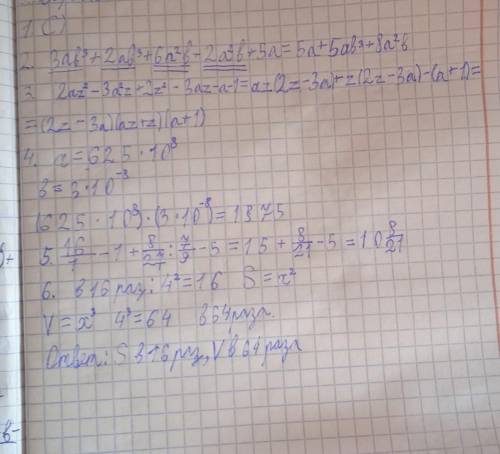 1. С)
2. 3ab³+2ab³+6a²b-2a²b+5a=5a+5ab³+8a²b
3. 2az²-3a²z+2z²-3az-a-1=az(2z-3a)+z(2z-3a)-(a+1)=
=(2z-3a)(az+z)(a+1)
4. a=625·10⁸
b=3·10⁻⁸
(625·10⁸)·(3·10⁻⁸)=1875
5. 16/1-1+8/27:7/9-5=15+8/21-5=10 8/21
6. в 16 раз: 4²=16 S=x²
V=x³ 4³=64 в 64 раза.
Ответ: S в 16 раз, V в 64 раза